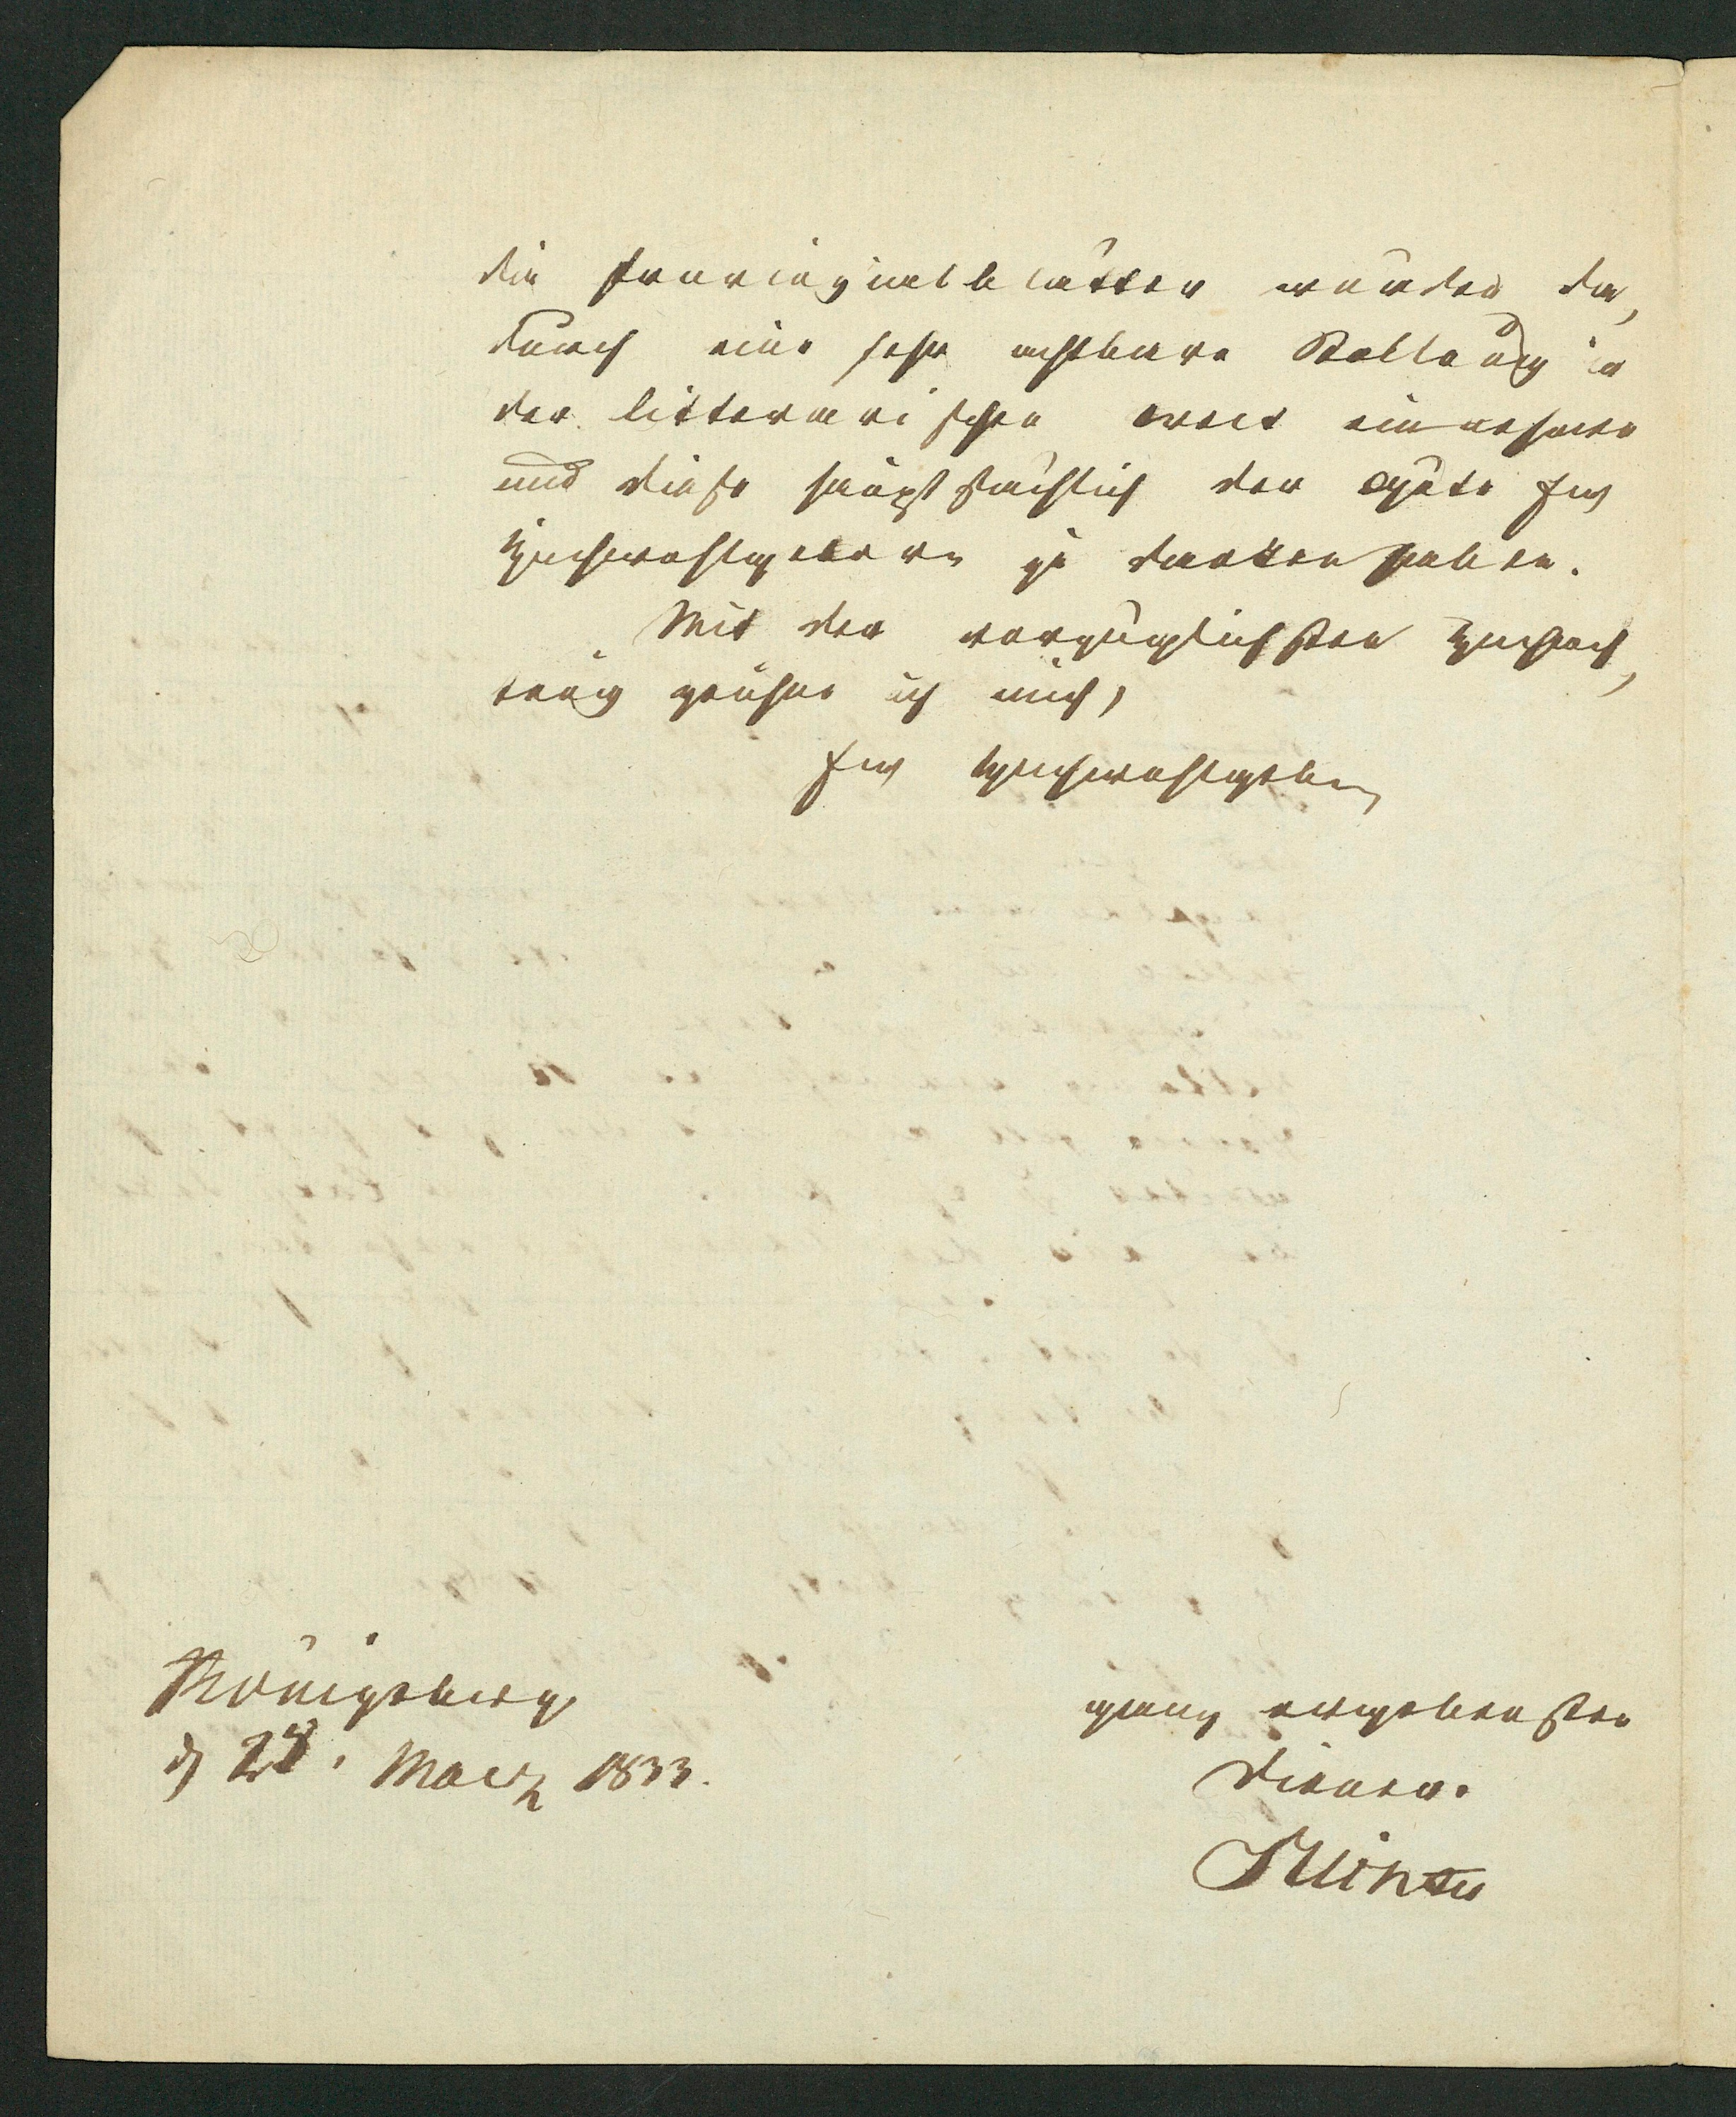 die Provinzialblätter würden da,
durch eine sehr achtbare Stellung in
der litterarischen Welt einnehmen
und diese hauptsächlich der Güte Ew
Hochwohlgeboren zu danken haben.
Mit der vorzüglichsten Hochach,
tung zeichne ich mich,
Ew Hochwohlgeb
Königsberg
d 28. Maerz 1833.
ganz ergebenster
Diener.